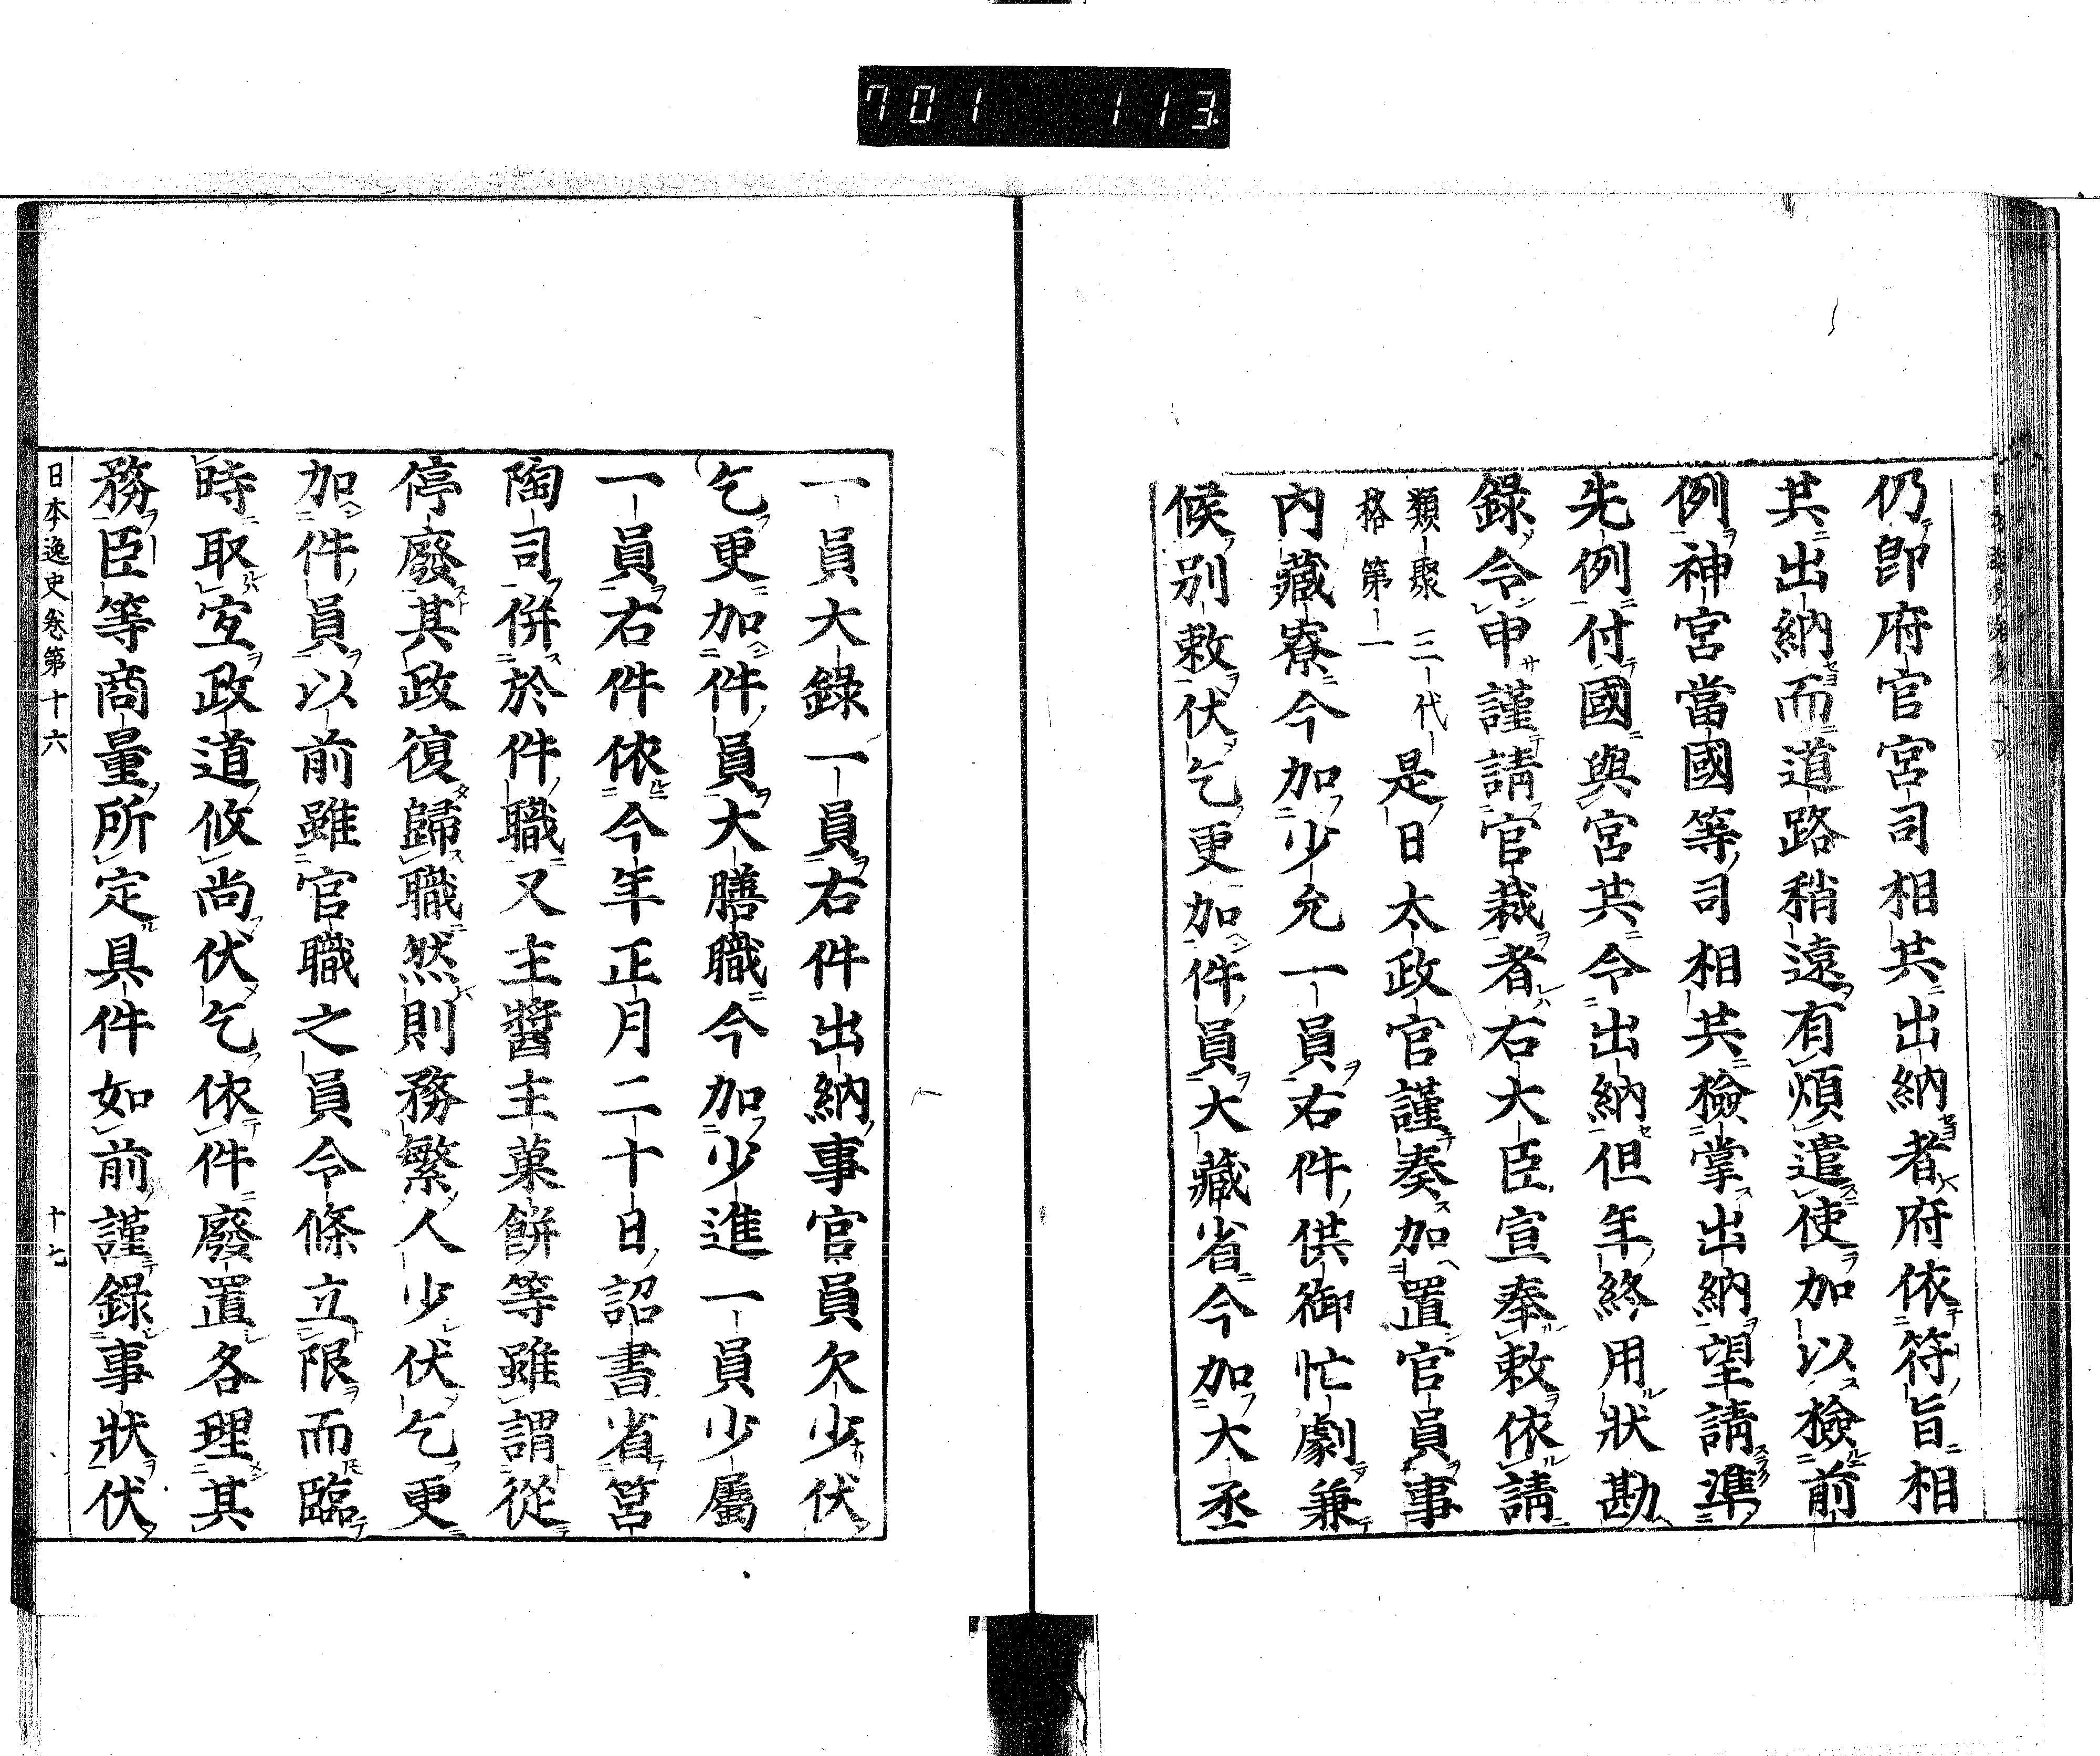 701 113
仍卽府官宮司相共出納者府依符旨相
共出納而道路稍遠有煩遣使加以檢前
例神宮當國等司相共檢掌出納望請準
先例付國與宮共令出納但年終用狀勘
錄令申謹請官裁者右大臣宣奉敕依請
類聚三代
格第一
是日太政官謹奏加置官員事
內藏寮今加少允一員右件供御忙劇兼
候別敕伏乞更加件員大藏省今加大丞
一員大錄一員右件出納事官員欠少伏
乞更加件員大膳職今加少進一員少屬
一員右件依今年正月二十日詔書省筥
陶司併於件職又主醬主菓餠等雖謂從
停廢其政復歸職然則務繁人少伏乞更
加件員以前雖官職之員令條立限而臨
時取宐政道攸尚伏乞依件廢置各理其
務臣等商量所定具件如前謹錄事狀伏
日本逸史卷第十六 十七